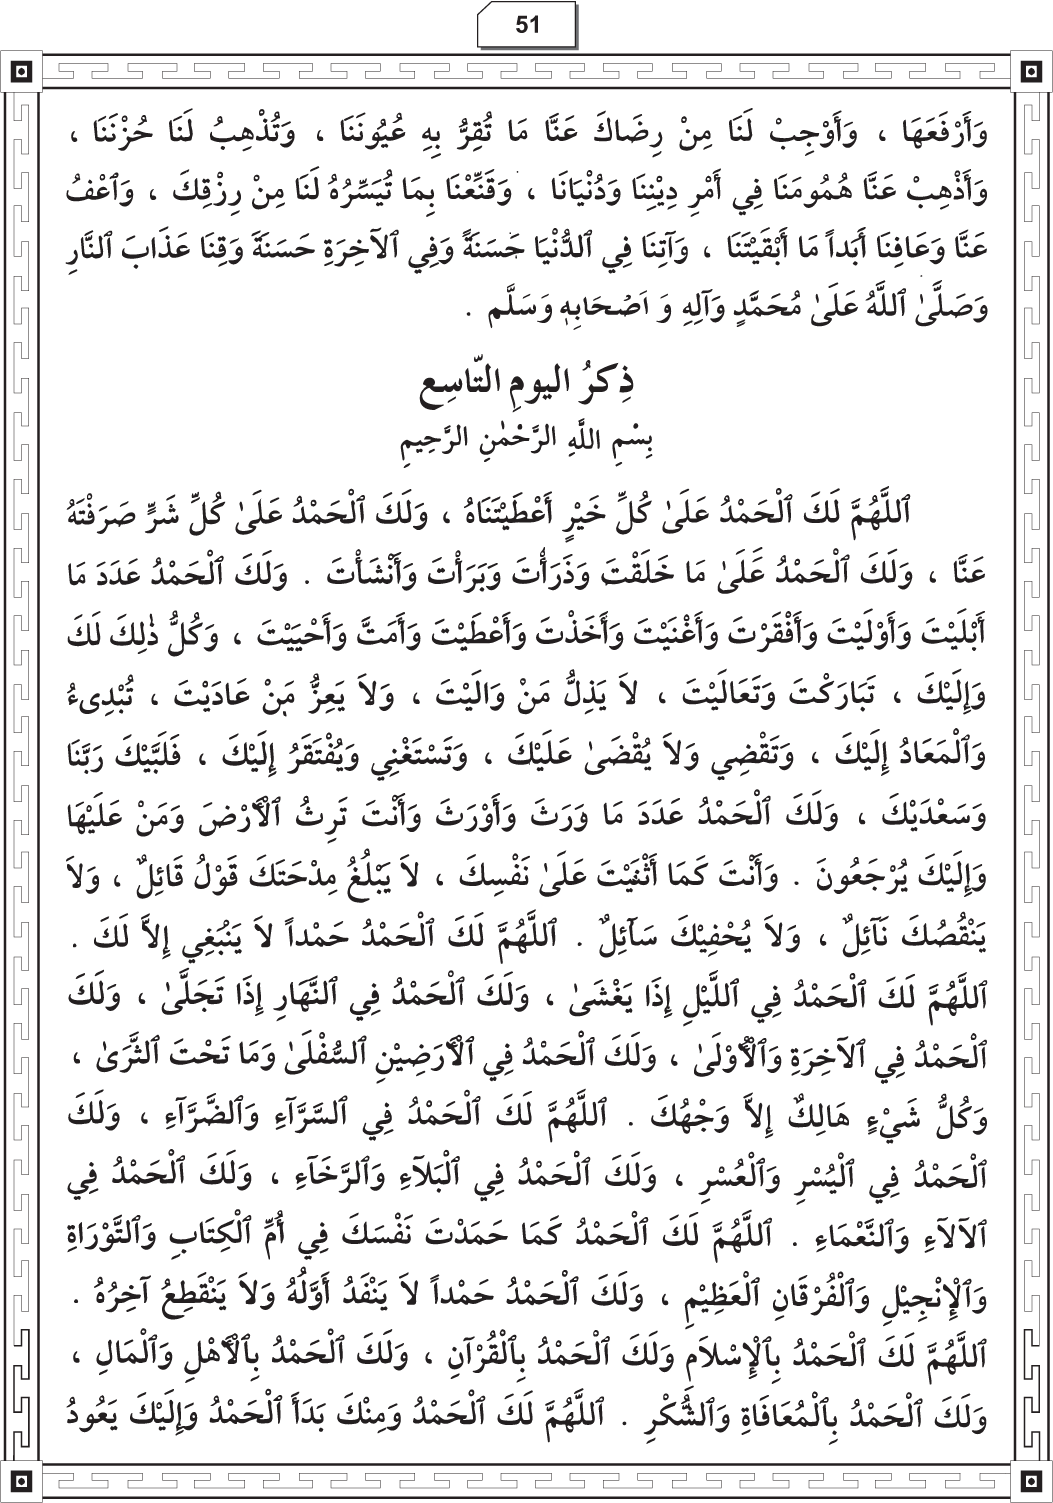 51
وَأَرْفَعَهَا ، وَأَوْجِبْ لَنَا مِنْ رِضَاكَ عَنَّا مَا تُقِرُّ بِهِ عُيُونَنَا ، وَتُذْهِبُ لَنَا حُزْنَنَا ،
وَأَذْهِبْ عَنَّا هُمُومَنَا فِي أَمْرِ دِيْنِنَا وَدُنْيَانَا ، وَقَنِّعْنَا بِمَا تُيَسِّرُهُ لَنَا مِنْ رِزْقِكَ ، وَٱعْفُ
عَنَّا وَعَافِنَا أَبَداً مَا أَبْقَيْتَنَا ، وَآتِنَا فِي ٱلدُّنْيَا حَسَنَةً وَفِي ٱلآخِرَةِ حَسَنَةً وَقِنَا عَذَابَ ٱلنَّارِ
وَصَلَّىٰ ٱللَّهُ عَلَىٰ مُحَمَّدٍ وَآلِهِ وَ اَصْحَابِهٖ وَسَلَّم .
ذِكرُ اليومِ التّاسِع
بِسْمِ اللَّهِ الرَّحْمٰنِ الرَّحِيمِ
ٱللَّهُمَّ لَكَ ٱلْحَمْدُ عَلَىٰ كُلِّ خَيْرٍ أَعْطَيْتَنَاهُ ، وَلَكَ ٱلْحَمْدُ عَلَىٰ كُلِّ شَرٍّ صَرَفْتَهُ
عَنَّا ، وَلَكَ ٱلْحَمْدُ عَلَىٰ مَا خَلَقْتَ وَذَرَأْتَ وَبَرَأْتَ وَأَنْشَأْتَ . وَلَكَ ٱلْحَمْدُ عَدَدَ مَا
أَبْلَيْتَ وَأَوْلَيْتَ وَأَفْقَرْتَ وَأَغْنَيْتَ وَأَخَذْتَ وَأَعْطَيْتَ وَأَمَتَّ وَأَحْيَيْتَ ، وَكُلُّ ذٰلِكَ لَكَ
وَإِلَيْكَ ، تَبَارَكْتَ وَتَعَالَيْتَ ، لاَ يَذِلُّ مَنْ وَالَيْتَ ، وَلاَ يَعِزُّ مَنْ عَادَيْتَ ، تُبْدِىءُ
وَٱلْمَعَادُ إِلَيْكَ ، وَتَقْضِي وَلاَ يُقْضَىٰ عَلَيْكَ ، وَتَسْتَغْنِي وَيُفْتَقَرُ إِلَيْكَ ، فَلَبَّيْكَ رَبَّنَا
وَسَعْدَيْكَ ، وَلَكَ ٱلْحَمْدُ عَدَدَ مَا وَرَثَ وَأَوْرَثَ وَأَنْتَ تَرِثُ ٱلأَرْضَ وَمَنْ عَلَيْهَا
وَإِلَيْكَ يُرْجَعُونَ . وَأَنْتَ كَمَا أَثْنَيْتَ عَلَىٰ نَفْسِكَ ، لاَ يَبْلُغُ مِدْحَتَكَ قَوْلُ قَائِلٌ ، وَلاَ
يَنْقُصُكَ نَآئِلٌ ، وَلاَ يُحْفِيْكَ سَآئِلٌ . ٱللَّهُمَّ لَكَ ٱلْحَمْدُ حَمْداً لاَ يَنْبُغِي إِلاَّ لَكَ .
ٱللَّهُمَّ لَكَ ٱلْحَمْدُ فِي ٱللَّيْلِ إِذَا يَغْشَىٰ ، وَلَكَ ٱلْحَمْدُ فِي ٱلنَّهَارِ إِذَا تَجَلَّىٰ ، وَلَكَ
ٱلْحَمْدُ فِي ٱلآخِرَةِ وَٱلأُوْلَىٰ ، وَلَكَ ٱلْحَمْدُ فِي ٱلأَرَضِيْنِ ٱلسُّفْلَىٰ وَمَا تَحْتَ ٱلثَّرَىٰ ،
وَكُلُّ شَيْءٍ هَالِكٌ إِلاَّ وَجْهُكَ . ٱللَّهُمَّ لَكَ ٱلْحَمْدُ فِي ٱلسَّرَّآءِ وَٱلضَّرَّآءِ ، وَلَكَ
ٱلْحَمْدُ فِي ٱلْيُسْرِ وَٱلْعُسْرِ ، وَلَكَ ٱلْحَمْدُ فِي ٱلْبَلآءِ وَٱلرَّخَآءِ ، وَلَكَ ٱلْحَمْدُ فِي
ٱلآلآءِ وَٱلنَّعْمَاءِ . ٱللَّهُمَّ لَكَ ٱلْحَمْدُ كَمَا حَمَدْتَ نَفْسَكَ فِي أُمِّ ٱلْكِتَابِ وَٱلتَّوْرَاةِ
وَٱلْإِنْجِيْلِ وَٱلْفُرْقَانِ ٱلْعَظِيْمِ ، وَلَكَ ٱلْحَمْدُ حَمْداً لاَ يَنْفَدُ أَوَّلُهُ وَلاَ يَنْقَطِعُ آخِرُهُ .
ٱللَّهُمَّ لَكَ ٱلْحَمْدُ بِٱلْإِسْلاَمِ وَلَكَ ٱلْحَمْدُ بِٱلْقُرْآنِ ، وَلَكَ ٱلْحَمْدُ بِٱلأَهْلِ وَٱلْمَالِ ،
وَلَكَ ٱلْحَمْدُ بِٱلْمُعَافَاةِ وَٱلشُّكْرِ . ٱللَّهُمَّ لَكَ ٱلْحَمْدُ وَمِنْكَ بَدَأَ ٱلْحَمْدُ وَإِلَيْكَ يَعُودُ